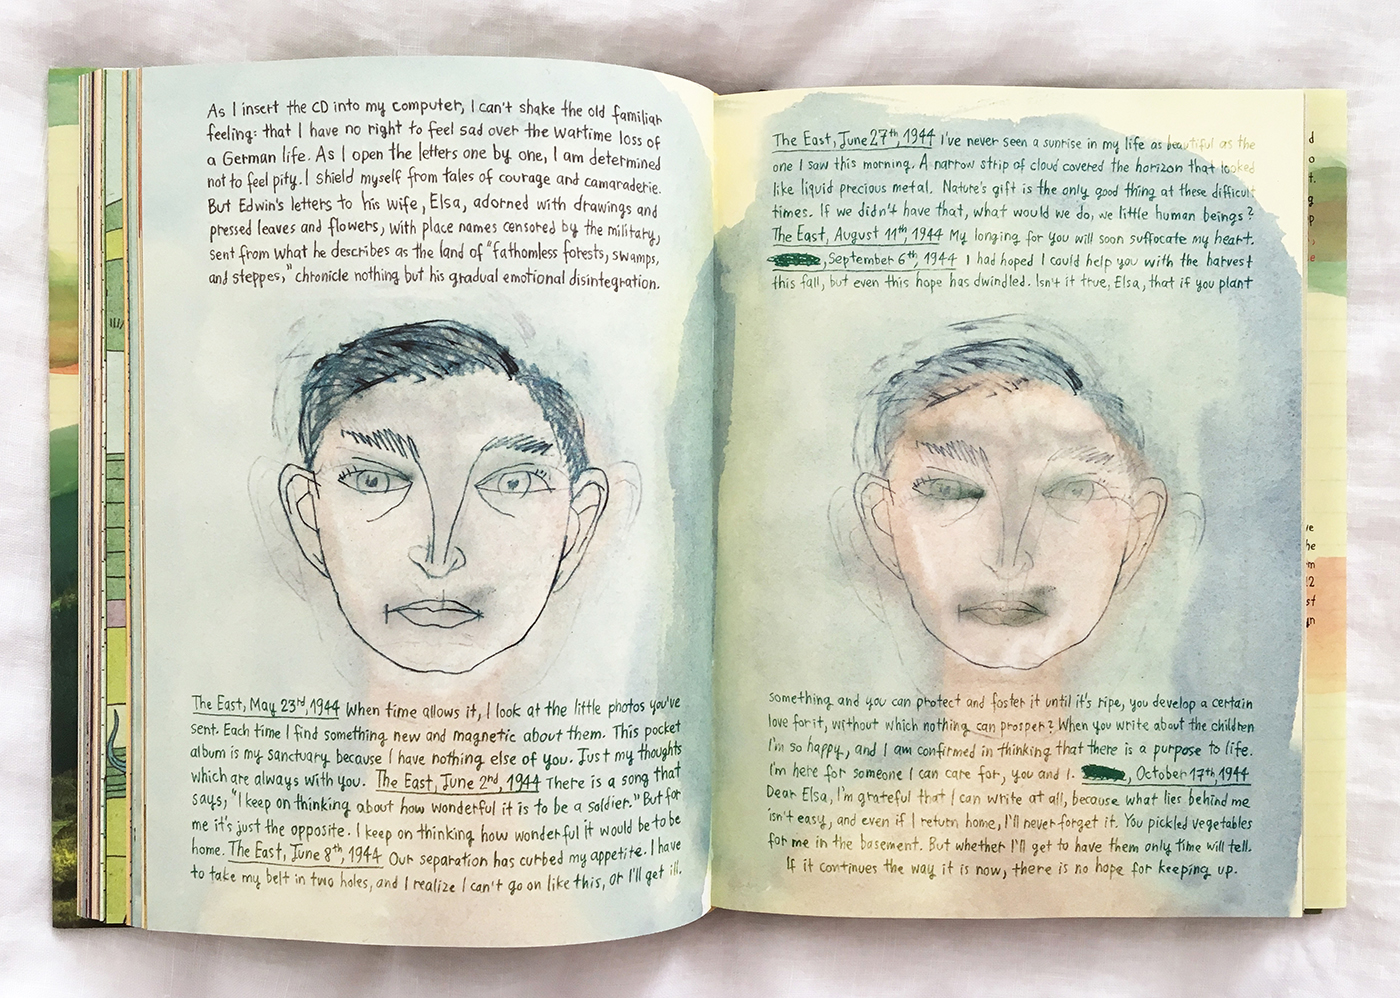 As I insert the CD into my computer, I can't shake the old familiar
feeling: that I have no right to feel sad over the wartime loss of
a German life. As I open the letters one by one, I am determined
not to feel pity. I shield myself from tales of courage and camaraderie.
But Edwin's letters to his wife, Elsa, adorned with drawings and
pressed leaves and flowers, with place names censored by the military,
sent from what he describes as the land of "fathomless forests, swamps,
and steppes," chronicle nothing but his gradual emotional disintegration.
The East, May 23rd, 1944 When time allows it, I look at the little photos you've
sent. Each time I find something new and magnetic about them. This pocket
album is my sanctuary because I have nothing else of you. Just my thoughts
which are always with you. The East, June 2nd, 1944 There is a song that
says, "I keep on thinking about how wonderful it is to be a soldier." But for
me it's just the opposite. I keep on thinking how wonderful it would be to be
home. The East, June 8th, 1944 Our separation has curbed my appetite. I have
to take my belt in two holes, and I realize I can't go on like this, or I'll get ill.
The East, June 27th, 1944 I've never seen a sunrise in my life as beautiful as the
one I saw this morning. A narrow strip of cloud covered the horizon that looked
like liquid precious metal. Nature's gift is the only good thing at these difficult
times. If we didn't have that, what would we do, we little human beings?
The East, August 11th, 1944 My longing for you will soon suffocate my heart.
, September 6th, 1944 I had hoped I could help you with the harvest
this fall, but even this hope has dwindled. Isn't it true, Elsa, that if you plant
something and you can protect and foster it until it's ripe, you develop a certain
love for it, without which nothing can prosper? When you write about the children
I'm so happy, and I am confirmed in thinking that there is a purpose to life.
I'm here for someone I can care for, you and I. , October 17th, 1944
Dear Elsa, I'm grateful that I can write at all, because what lies behind me
isn't easy, and even if I return home, I'll never forget it. You pickled vegetables
for me in the basement. But whether I'll get to have them only time will tell.
If it continues the way it is now, there is no hope for keeping up.